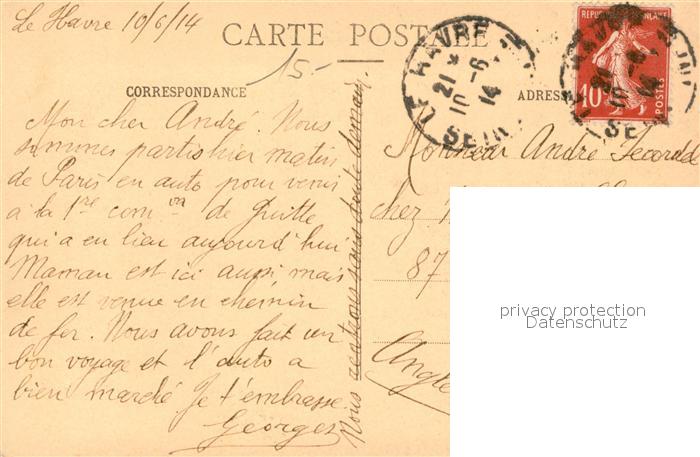 Le Havre 10/6/14
CARTE POSTALE
15-
CORRESPONDANCE
ADRESSE
Mon cher André. Nous
sommes partis hier matin
de Paris en auto pour venir
à la 1re comon de Guitte
qui a eu lieu aujourd'hui
Maman est ici aussi mais
elle est venue en chemin
de fer. Nous avons fait un
bon voyage et l'auto a
bien marché Je t'embrasse.
Georges
Nous rentrons sans doute demain.
Monsieur André
chez
87
Angle
LE HAVRE
21 * 10-6 14
SEINE
REPUBLIQUE FRANCAISE
10c
POSTES
privacy protection
Datenschutz